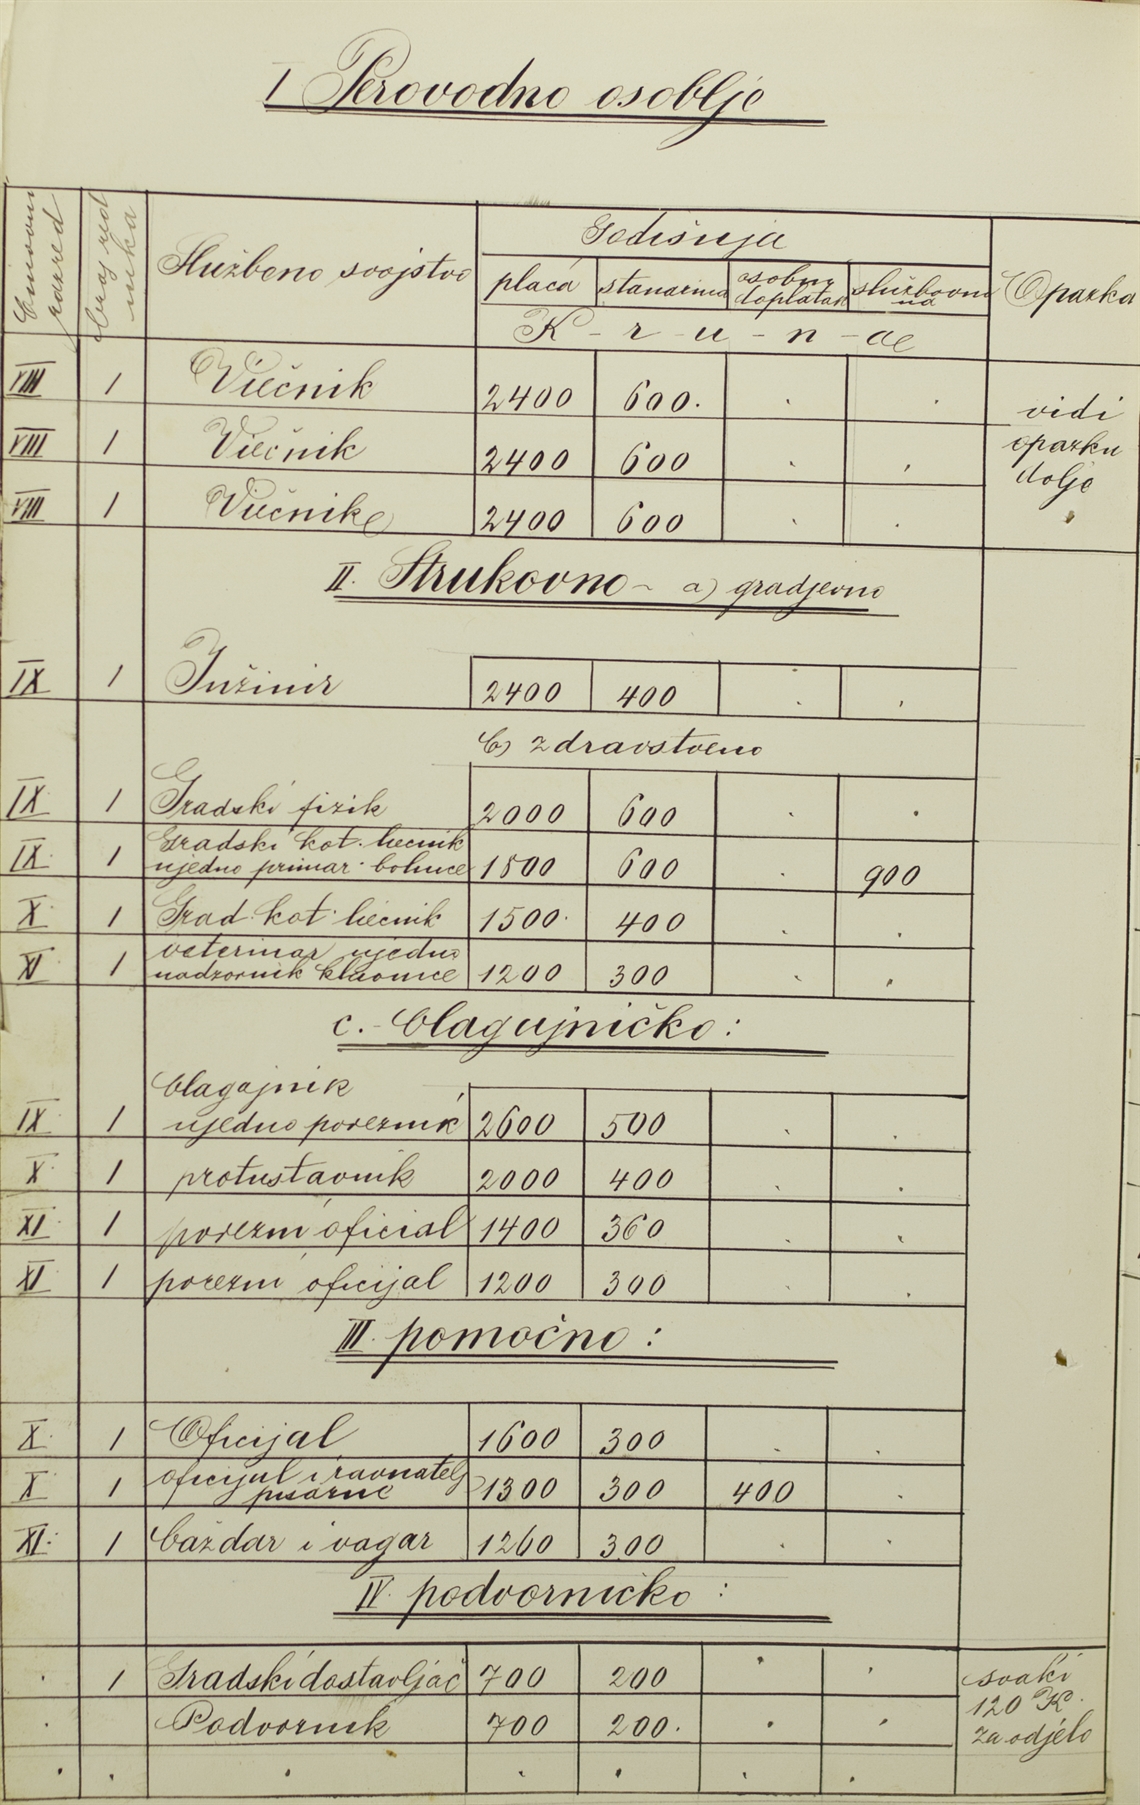 I Perovodno osoblje
Činovni razred
broj red nika
Službeno svojstvo
Godišnja
Opazka
plaća stanarina osobni doplatak službovnina
K - r - u - n - ae
VIII 1 Viečnik 2400 600. . .
VIII 1 Viečnik 2400 600 . .
VIII 1 Viečnik 2400 600 . .
vidi
opazku
dolje
II. Strukovno - a) gradjevno
IX 1 Inžinir 2400 400 . .
b) zdravstveno
IX 1 Gradski fizik 2000 600 . .
IX 1 Gradski kot. liečnik
ujedno primar bolnice 1800 600 . 900
X 1 Grad. kot. liečnik 1500. 400 . .
XI 1 veterinar ujedno
nadzornik klaonice 1200 300 . .
c. blagajničko:
IX 1 blagajnik
ujedno poreznik 2600 500 . .
X 1 protustavnik 2000 400 . .
XI 1 porezni oficial 1400 360 . .
XI 1 porezni oficijal 1200 300 . .
III. pomoćno:
X 1 Oficijal 1600 300 . .
X 1 oficijal i ravnatelj
pisarne 1300 300 400 .
XI. 1 baždar i vagar 1260 300 . .
IV. podvorničko:
. 1 Gradski dostavljač 700 200 . .
. Podvornik 700 200. . .
svaki
120 K.
za odjelo
. . . . . . .